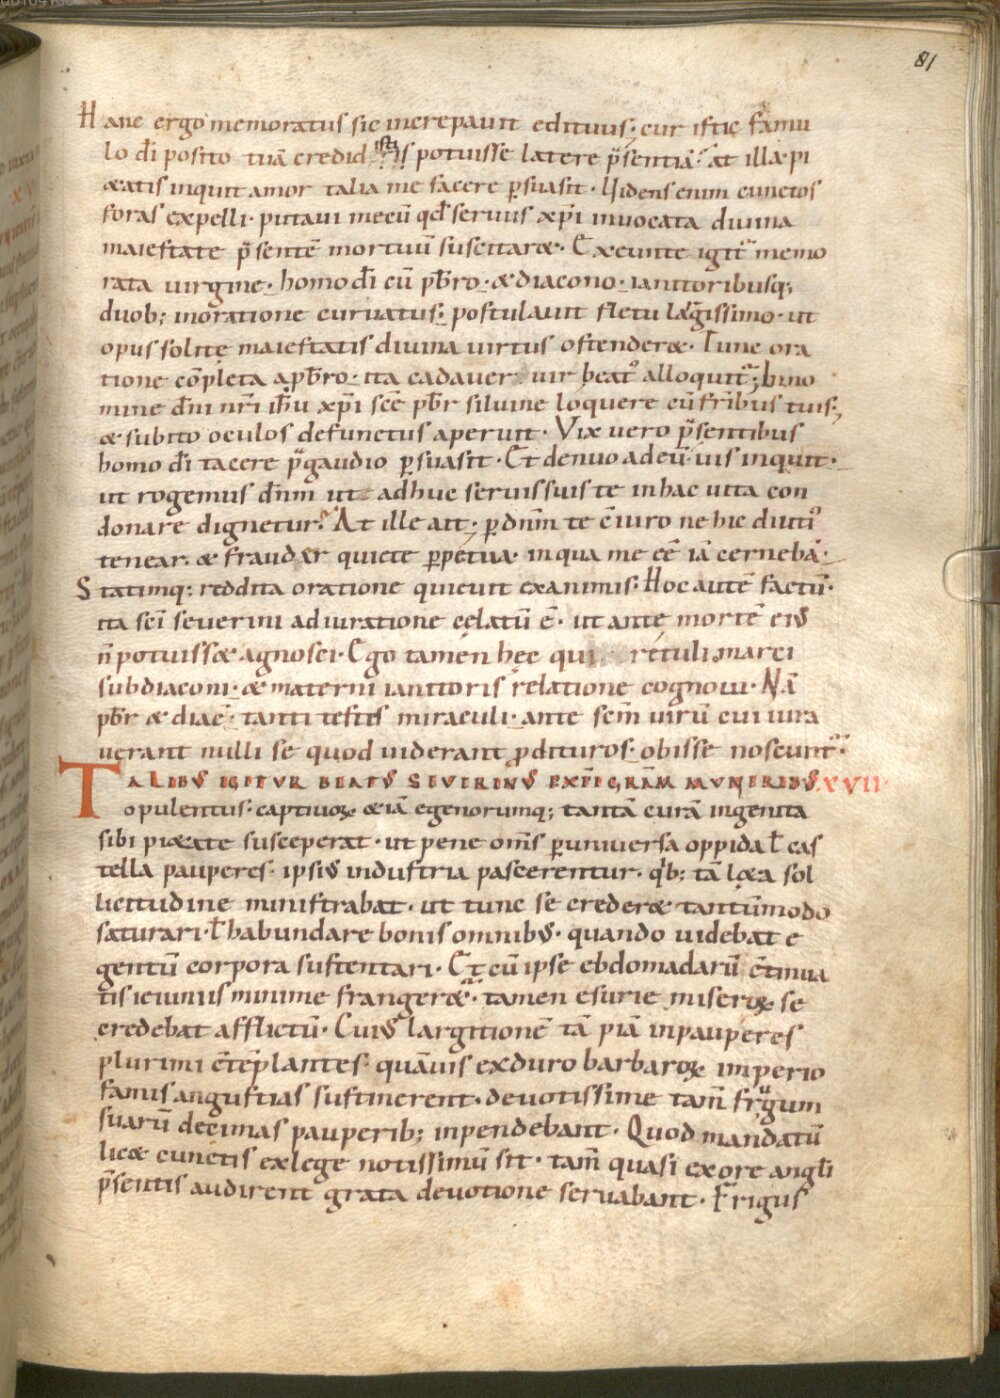 81
Hanc ergo memoratus sic increpauit edituus; cur istic famu
lo dī posito tuā credidisti potuisse latere p̄sentiā? at illa pi
&atis inquit amor talia me facere p̱suasit. Uidens enim cunctos
foras expelli. putaui mecū qđ seruus xp̄i inuocata diuina
maiestate p̄sentē mortuū suscitar&. Exeunte igit̄ memo
rata uirgine. homo dī cū pb̄ro. & diacono. ianitoribusq;
duob; inoratione curuatus; postulauit fletu largissimo. ut
opus solite maiestatis diuina uirtus ostender&. Tunc ora
tione cōpleta a pb̄ro. ita cadauer uir beat᾿ alloquit̄; In no
mine dn̄i nr̄i ih̄u xp̄i sc̄e pb̄r siluine loquere cū fr̄ibus tuis;
& subito oculos defunctus aperuit. Vix uero p̄sentibus
homo dī tacere p̄gaudio p̱suasit. Et denuo ad eū. uis inquit.
ut rogemus dn̄m ut adhuc seruis suis te in hac uita con
donare dignetur? At ille ait. p̱ dn̄m te c̄iuro ne hic diuti᾿
tenear. & frauder quiete p̱petua. in qua me eē iā cernebā.
Statimq; reddita oratione quieuit exanimis. Hoc autē factū.
ita sc̄i seuerini adiuratione celatū ē. ut ante mortē ei᾿
n̄ potuiss& agnosci. Ego tamen hęc qui retuli marci
subdiaconi. & materni ianitoris relatione cognoui. Nā
pb̄r & diac̄. tanti testes miraculi. ante sc̄m uirū cui iura
uerant nulli se quod uiderant p̱dituros. obisse noscunt̄.
TALIBUS IGITUR BEATUS SEUERINUS EXPI GRAM MUNERIBUS XVII
opulentus. captiuoꝝ & iā egenorumq; tantā curā ingenita
sibi pi&ate susceperat. ut pene om̄s p̱ uniuersa oppida ł cas
tella pauperes. ipsi᾿ industria pascerentur. qb; tā l&a sol
licitudine ministrabat. ut tunc se creder& tantūmodo
saturari. ł habundare bonis omnib᾿. quando uidebat e
gentū corpora sustentari. Et cū ipse ebdomadarū c̄tinua
tis ieiuniis minime franger&̄. tamen esurie miseroꝝ se
credebat afflictū. Cui᾿ largitionē tā piā inpauperes
plurimi c̄tēplantes. quāuis ex duro barbaroꝝ imperio
famis angustias sustinerent. deuotissime tam̄ frugum
suarū decimas pauperib; inpendebant. Quod mandatū
lic& cunctis ex lege notissimū sit. tam̄ quasi ex ore angl̄i
p̄sentis audirent grata deuotione seruabant. Frigus